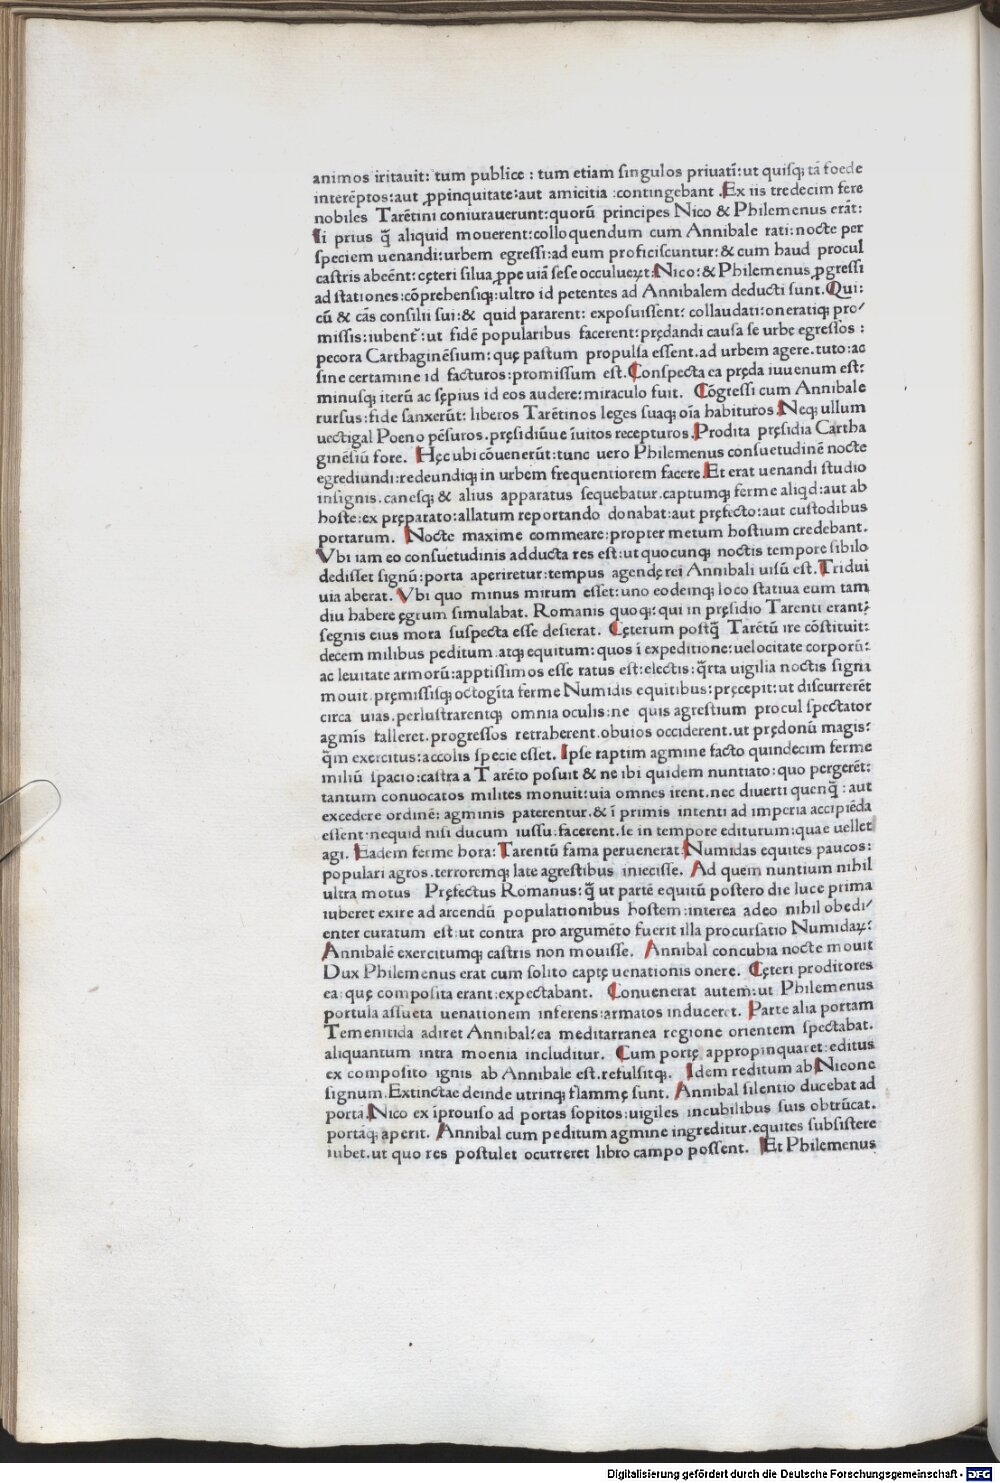 animos iritauit: tum publice : tum etiam singulos priuatī:ut quisq; tā foede
interēptos:aut ꝓpinquitate:aut amicitia :contingebant .Ex iis tredecim fere
nobiles Tarētini coniurauerunt:quorū principes Nico & Philemenus erāt:
Ii prius q̄ aliquid mouerent:colloquendum cum Annibale rati:nocte per
speciem uenandi:urbem egressi:ad eum proficiscuntur:& cum haud procul
castris abeēnt:cęteri silua ꝓpe uiā sese occulueꝝt:Nico:& Philemenus ꝓgressi
ad stationes:cōprehensiq;:ultro id petentes ad Annibalem deducti sunt.Qui:
cū & cās consilii sui:& quid pararent: exposuissent: collaudati:oneratiq; pro⸗
missis:iubent᷑:ut fidē popularibus facerent:prędandi causa se urbe egressos :
pecora Carthaginēsium:quę pastum propulsa essent.ad urbem agere.tuto:ac
sine certamine id facturos:promissum est.Conspecta ea pręda iuuenum est:
minusq; iterū ac sępius id eos audere:miraculo fuit. Cōgressi cum Annibale
rursus:fide sanxerūt: liberos Tarētinos leges suaq; oīa habituros.Neq; ullum
uectigal Poeno pēsuros.pręsidiūue īuitos recepturos.Prodita pręsidia Cartha
ginēsiū fore. Hęc ubi cōuenerūt:tunc uero Philemenus consuetudinē nocte
egrediundi:redeundiq; in urbem frequentiorem facere.Et erat uenandi studio
insignis.canesq; & alius apparatus sequebatur.captumq; ferme aliqd:aut ab
hoste:ex pręparato:allatum reportando donabat:aut pręfecto:aut custodibus
portarum. Nocte maxime commeare:propter metum hostium credebant.
Vbi iam eo consuetudinis adducta res est:ut quocunq; noctis tempore sibilo
dedisset signū:porta aperiretur:tempus agendę rei Annibali uisū est.Tridui
uia aberat. Vbi quo minus mirum esset:uno eodemq; loco statiua eum tam
diu habere ęgrum simulabat. Romanis quoq;: qui in pręsidio Tarenti erant:
segnis eius mora suspecta esse desierat. Cęterum postq̄ Tarētū ire cōstituit:
decem milibus peditum.atq; equitum:quos ī expeditione:uelocitate corporū:
ac leuitate armorū:apptissimos esse ratus est:electis:q̄rta uigilia noctis signa
mouit.pręmissisq; octogīta ferme Numidis equitibus:pręcepit:ut discurrerēt
circa uias.perlustrarentq; omnia oculis:ne quis agrestium procul spectator
agmīs falleret.progressos retraherent.obuios occiderent.ut prędonū magis:
q̄m exercitus:accolis specie esset. Ipse raptim agmine facto quindecim ferme
miliū spacio:castra a Tarēto posuit & ne ibi quidem nuntiato:quo pergerēt:
tantum conuocatos milites monuit:uia omnes irent.nec diuerti quenq̄ : aut
excedere ordinē: agminis paterentur.& ī primis intenti ad imperia accipiēda
essent.nequid nisi ducum iussu:facerent.se in tempore editurum:quae uellet
agi. Eadem ferme hora: Tarentū fama peruenerat:Numidas equites paucos:
populari agros.terroremq; late agrestibus iniecisse. Ad quem nuntium nihil
ultra motus Pręfectus Romanus: q̄ ut partē equitū postero die luce prima
iuberet exire ad arcendū populationibus hostem:interea adeo nihil obedi⸗
enter curatum est:ut contra pro argumēto fuerit illa procursatio Numidaꝝ:
Annibalē exercitumq; castris non mouisse. Annibal concubia nocte mouit
Dux Philemenus erat cum solito captę uenationis onere. Cęteri proditores
ea:quę composita erant:expectabant. Conuenerat autem:ut Philemenus
portula assueta uenationem inferens:armatos induceret. Parte alia portam
Temenitida adiret Annibal:ea meditarranea regione orientem spectabat.
aliquantum intra moenia includitur. Cum portę appropinquaret:editus
ex composito ignis ab Annibale est.refulsitq;. Idem reditum ab Nicone
signum.Extinctae deinde utrinq; flammę sunt. Annibal silentio ducebat ad
portā.Nico ex iprouiso ad portas sopitos:uigiles incubilibus suis obtrūcat.
portāq; aperit. Annibal cum peditum agmine ingreditur.equites subsistere
iubet.ut quo res postulet ocurreret libro campo possent. Et Philemenus
Digitalisierung gefördert durch die Deutsche Forschungsgemeinschaft - DFG